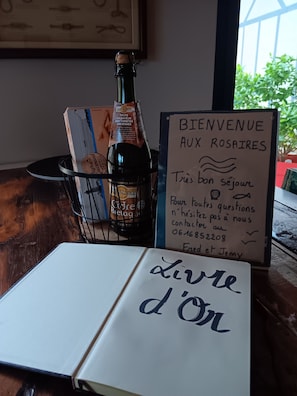 BIENVENUE
AUX ROSAIRES
Très bon séjour
Pour toutes questions
n'hésitez pas à nous
contacter au
0616852208
et Jenny
Cidre
Livre
d'Or